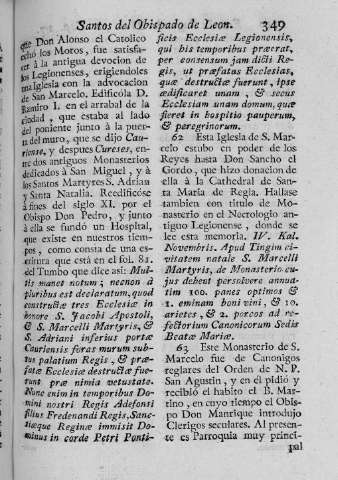 Santos del Obispado de Leon. 349
que Don Alonso el Catolico
echó los Moros, fue satisfa-
cer à la antigua devocion de
los Legionenses, erigiendoles
una Iglesia con la advocacion
de San Marcelo. Edificóla D.
Ramiro I. en el arrabal de la
ciudad, que estaba al lado
del poniente junto à la puer-
ta del muro, que se dijo Cau-
riense, y despues Cureses, en-
tre dos antiguos Monasterios
dedicados à San Miguel, y à
los Santos Martyres S. Adrian
y Santa Natalia. Reedificóse
à fines del siglo XI. por el
Obispo Don Pedro, y junto
à ella se fundó un Hospital,
que existe en nuestros tiem-
pos, como consta de una es-
critura que está en el fol. 81.
del Tumbo que dice asi: Mul-
tis manet notum; necnon à
pluribus est declaratum, quod
constructæ tres Ecclesiæ in
honore S. Jacobi Apostoli,
& S. Marcelli Martyris, &
S. Adriani inferius portæ
Cauriensis foras murum sub-
tus palatium Regis, & præ-
fatæ Ecclesiæ destructæ fue-
runt præ nimia vetustate.
Nunc enim in temporibus Do-
mini nostri Regis Adefonsi
filius Fredenandi Regis, Sanc-
tiæque Reginæ immisit Do-
minus in corde Petri Ponti-
ficis Ecclesiæ Legionensis,
qui his temporibus præerat,
per consensum jam dicti Re-
gis, ut præfatas Ecclesias,
quæ destructæ fuerunt, ipse
edificaret unam, & secus
Ecclesiam unam domum, quæ
fieret in hospitio pauperum,
& peregrinorum.
62 Esta Iglesia de S. Mar-
celo estubo en poder de los
Reyes hasta Don Sancho el
Gordo, que hizo donacion de
ella à la Cathedral de San-
ta Maria de Regla. Hallase
tambien con titulo de Mo-
nasterio en el Necrologio an-
tiguo Legionense, donde se
lee esta memoria. IV. Kal.
Novembris. Apud Tingim ci-
vitatem natale S. Marcelli
Martyris, de Monasterio cu-
jus debent persolvere annua-
tim 100. panes optimos &
1. eminam boni vini, & 10.
arietes, & 2. porcos ad re-
fectorium Canonicorum Sedis
Beatæ Mariæ.
63 Este Monasterio de S.
Marcelo fue de Canonigos
reglares del Orden de N. P.
San Agustin, y en él pidió y
recibió el habito el B. Mar-
tino, en cuyo tiempo el Obis-
po Don Manrique introdujo
Clerigos seculares. Al presen-
te es Parroquia muy princi-
pal